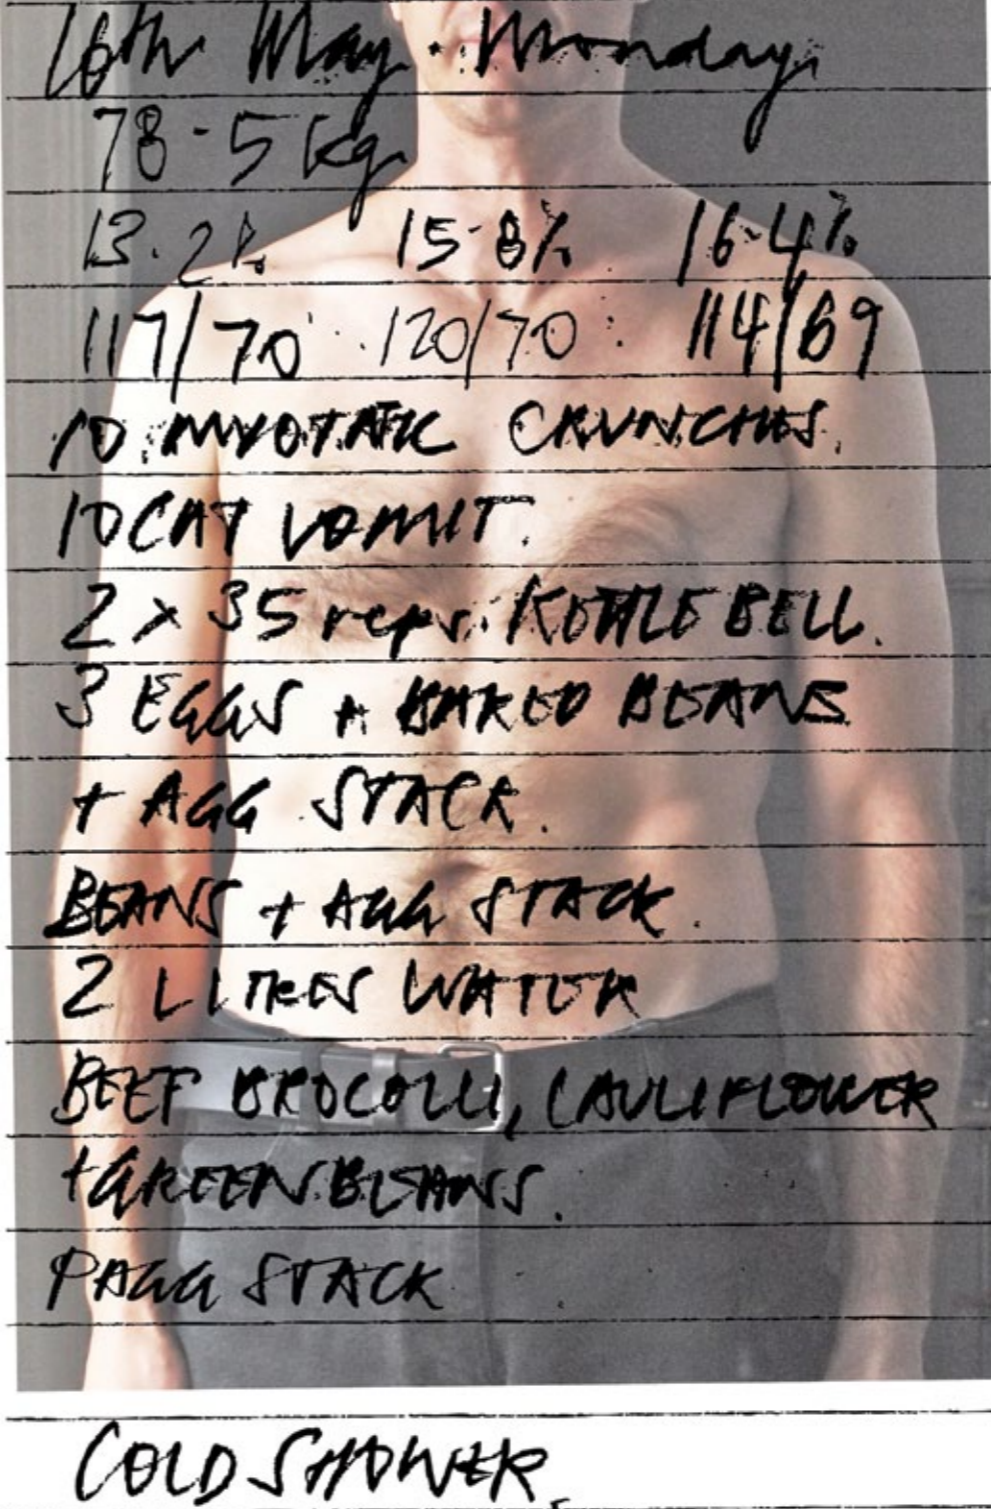 16th May. Monday.
78-5 kg.
13.2% 15-8%. 16-4%.
117/70 120/70 : 114/69
10 MYOTATIC CRUNCHES.
10 CAT VOMIT.
2 x 35 reps. KETTLE BELL.
3 EGGS + BAKED BEANS
+ AGG STACK.
BEANS + AGG STACK.
2 LITRES WATER
BEEF BROCOLLI, CAULIFLOWER
+ GREEN BEANS.
PAGG STACK
COLD SHOWER.